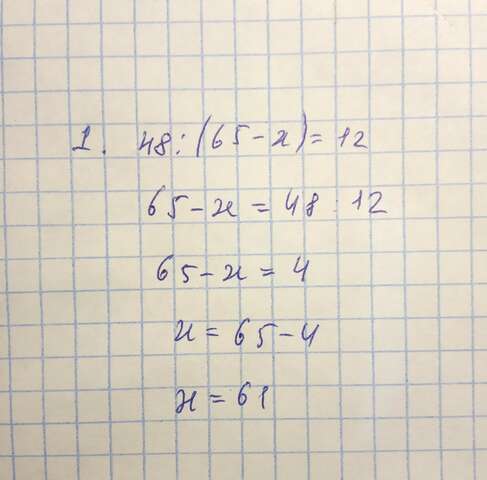 1. 48:(65-x)=12
65-x=48:12
65-x=4
x=65-4
x=61